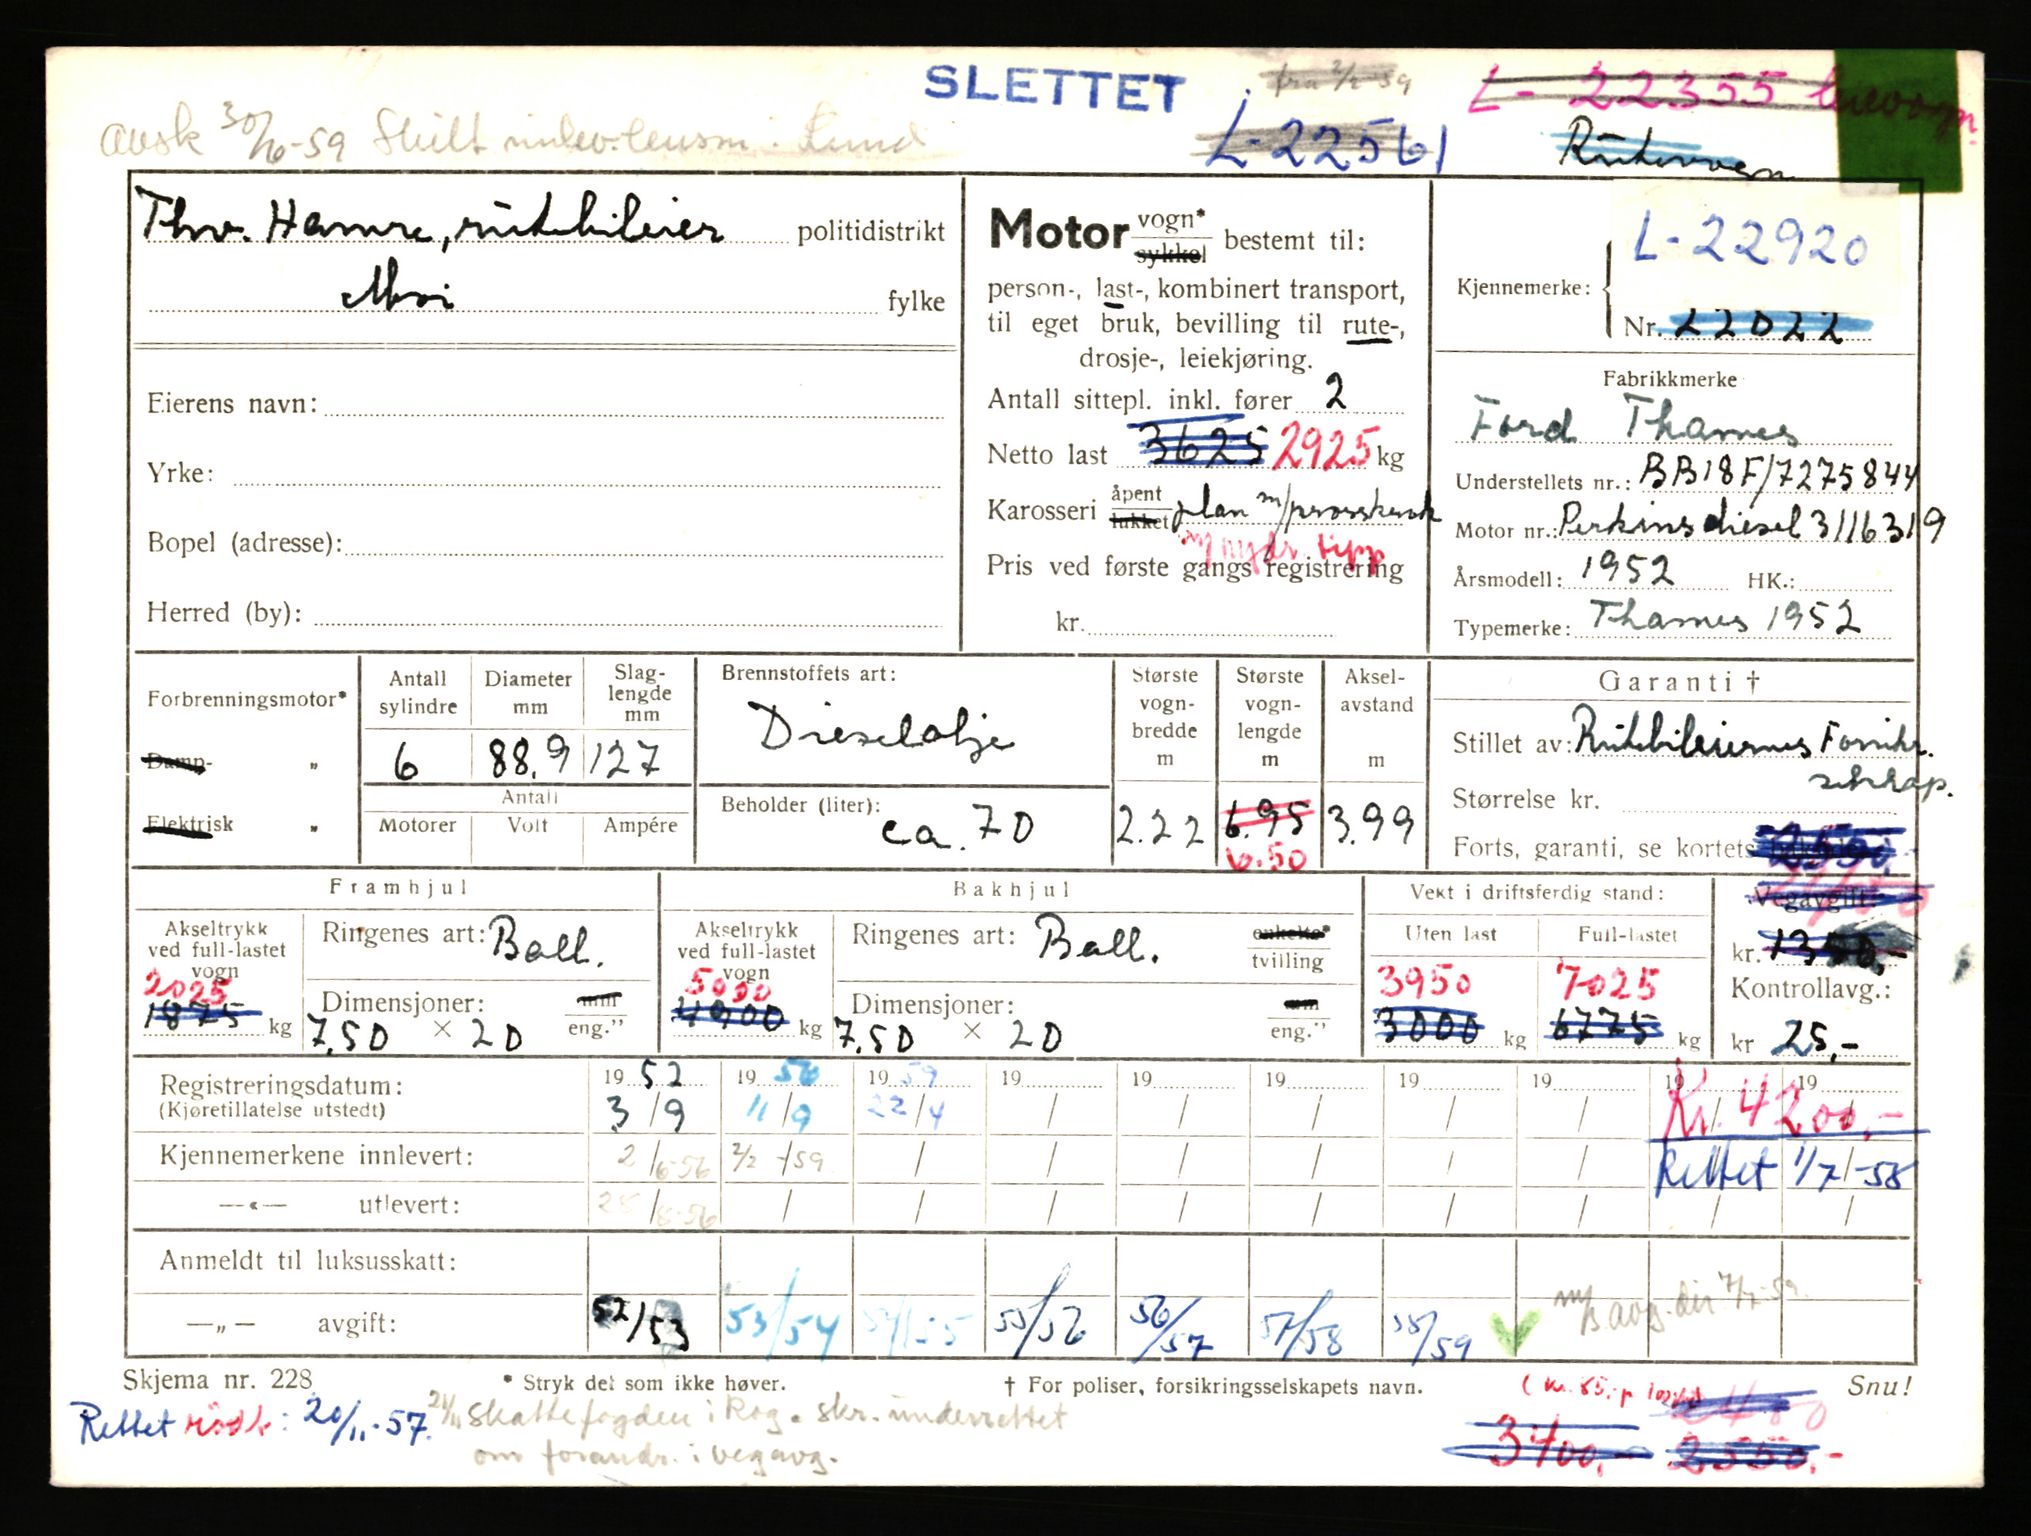 SLETTET
fra 2/2 59
L- 22355 leievogn
avsk 30/10-59 Skilt innlev. lensm. Lund
L-22561
Rutevogn
Thv. Hamre, rutebileier politidistrikt
Moi fylke
Eierens navn:
Yrke:
Bopel (adresse):
Herred (by):
Motor vogn* sykkel bestemt til:
person-, last-, kombinert transport,
til eget bruk, bevilling til rute-,
drosje-, leiekjøring.
Antall sittepl. inkl. fører 2
Netto last 3625 2925 kg
Karosseri åpent lukket plan m/
m/hydr. tipp
Pris ved første gangs registrering
kr.
L-22920
Kjennemerke:
Nr. 22022
Fabrikkmerke
Ford Thames
Understellets nr.: BB18F/7275844
Motor nr.: Perkins diesel 3116319
Årsmodell: 1952 HK.:
Typemerke: Thames 1952
Forbrenningsmotor*
Damp- „
Elektrisk „
Antall sylindre
6
Diameter mm
88,9
Slag- lengde mm
127
Antall
Motorer Volt Ampére
Brennstoffets art:
Dieselolje
Beholder (liter): ca. 70
Største vogn- bredde m
2.22
Største vogn- lengde m
6.95
6.50
Aksel- avstand m
3.99
Garanti †
Stillet av: Rutebileiernes Forsikr.
selskap.
Størrelse kr.
Forts, garanti, se kortets 2550,
Framhjul
Akseltrykk ved full-lastet vogn
2025
1875 kg
Ringenes art: Ball.
Dimensjoner: mm
7.50 × 20 eng."
Bakhjul
Akseltrykk ved full-lastet vogn
5000
4900 kg
Ringenes art: Ball. enkelte* tvilling
Dimensjoner: mm
7.50 × 20 eng."
Vekt i driftsferdig stand:
Uten last Full-lastet
3950 7025
3000 kg 6775 kg
Vegavgift:
kr. 1350,-
Kontrollavg.:
kr 25,-
Registreringsdatum: 19 52 19 56 19 59 19 19 19 19 19 19 19
(Kjøretillatelse utstedt) 3/9 11/9 22/4 / / / / / Kr. 4200,-
Kjennemerkene innlevert: 2/6-56 2/2 -59 / / / / / / Rettet 1/7-58
—«— utlevert: 25/8-56 / / / / / / / / /
Anmeldt til luksusskatt:
—„— avgift: 52/53 53/54 54/55 55/56 56/57 57/58 58/59 avg. dir 7/7-59.
Skjema nr. 228
* Stryk det som ikke høver.
† For poliser, forsikringsselskapets navn.
Snu!
Rettet rødt: 20/11-57. 21/11 Skattefogden i Rog. skr. underrettet
om forandr. i vegavg.
3400,- 2550,-